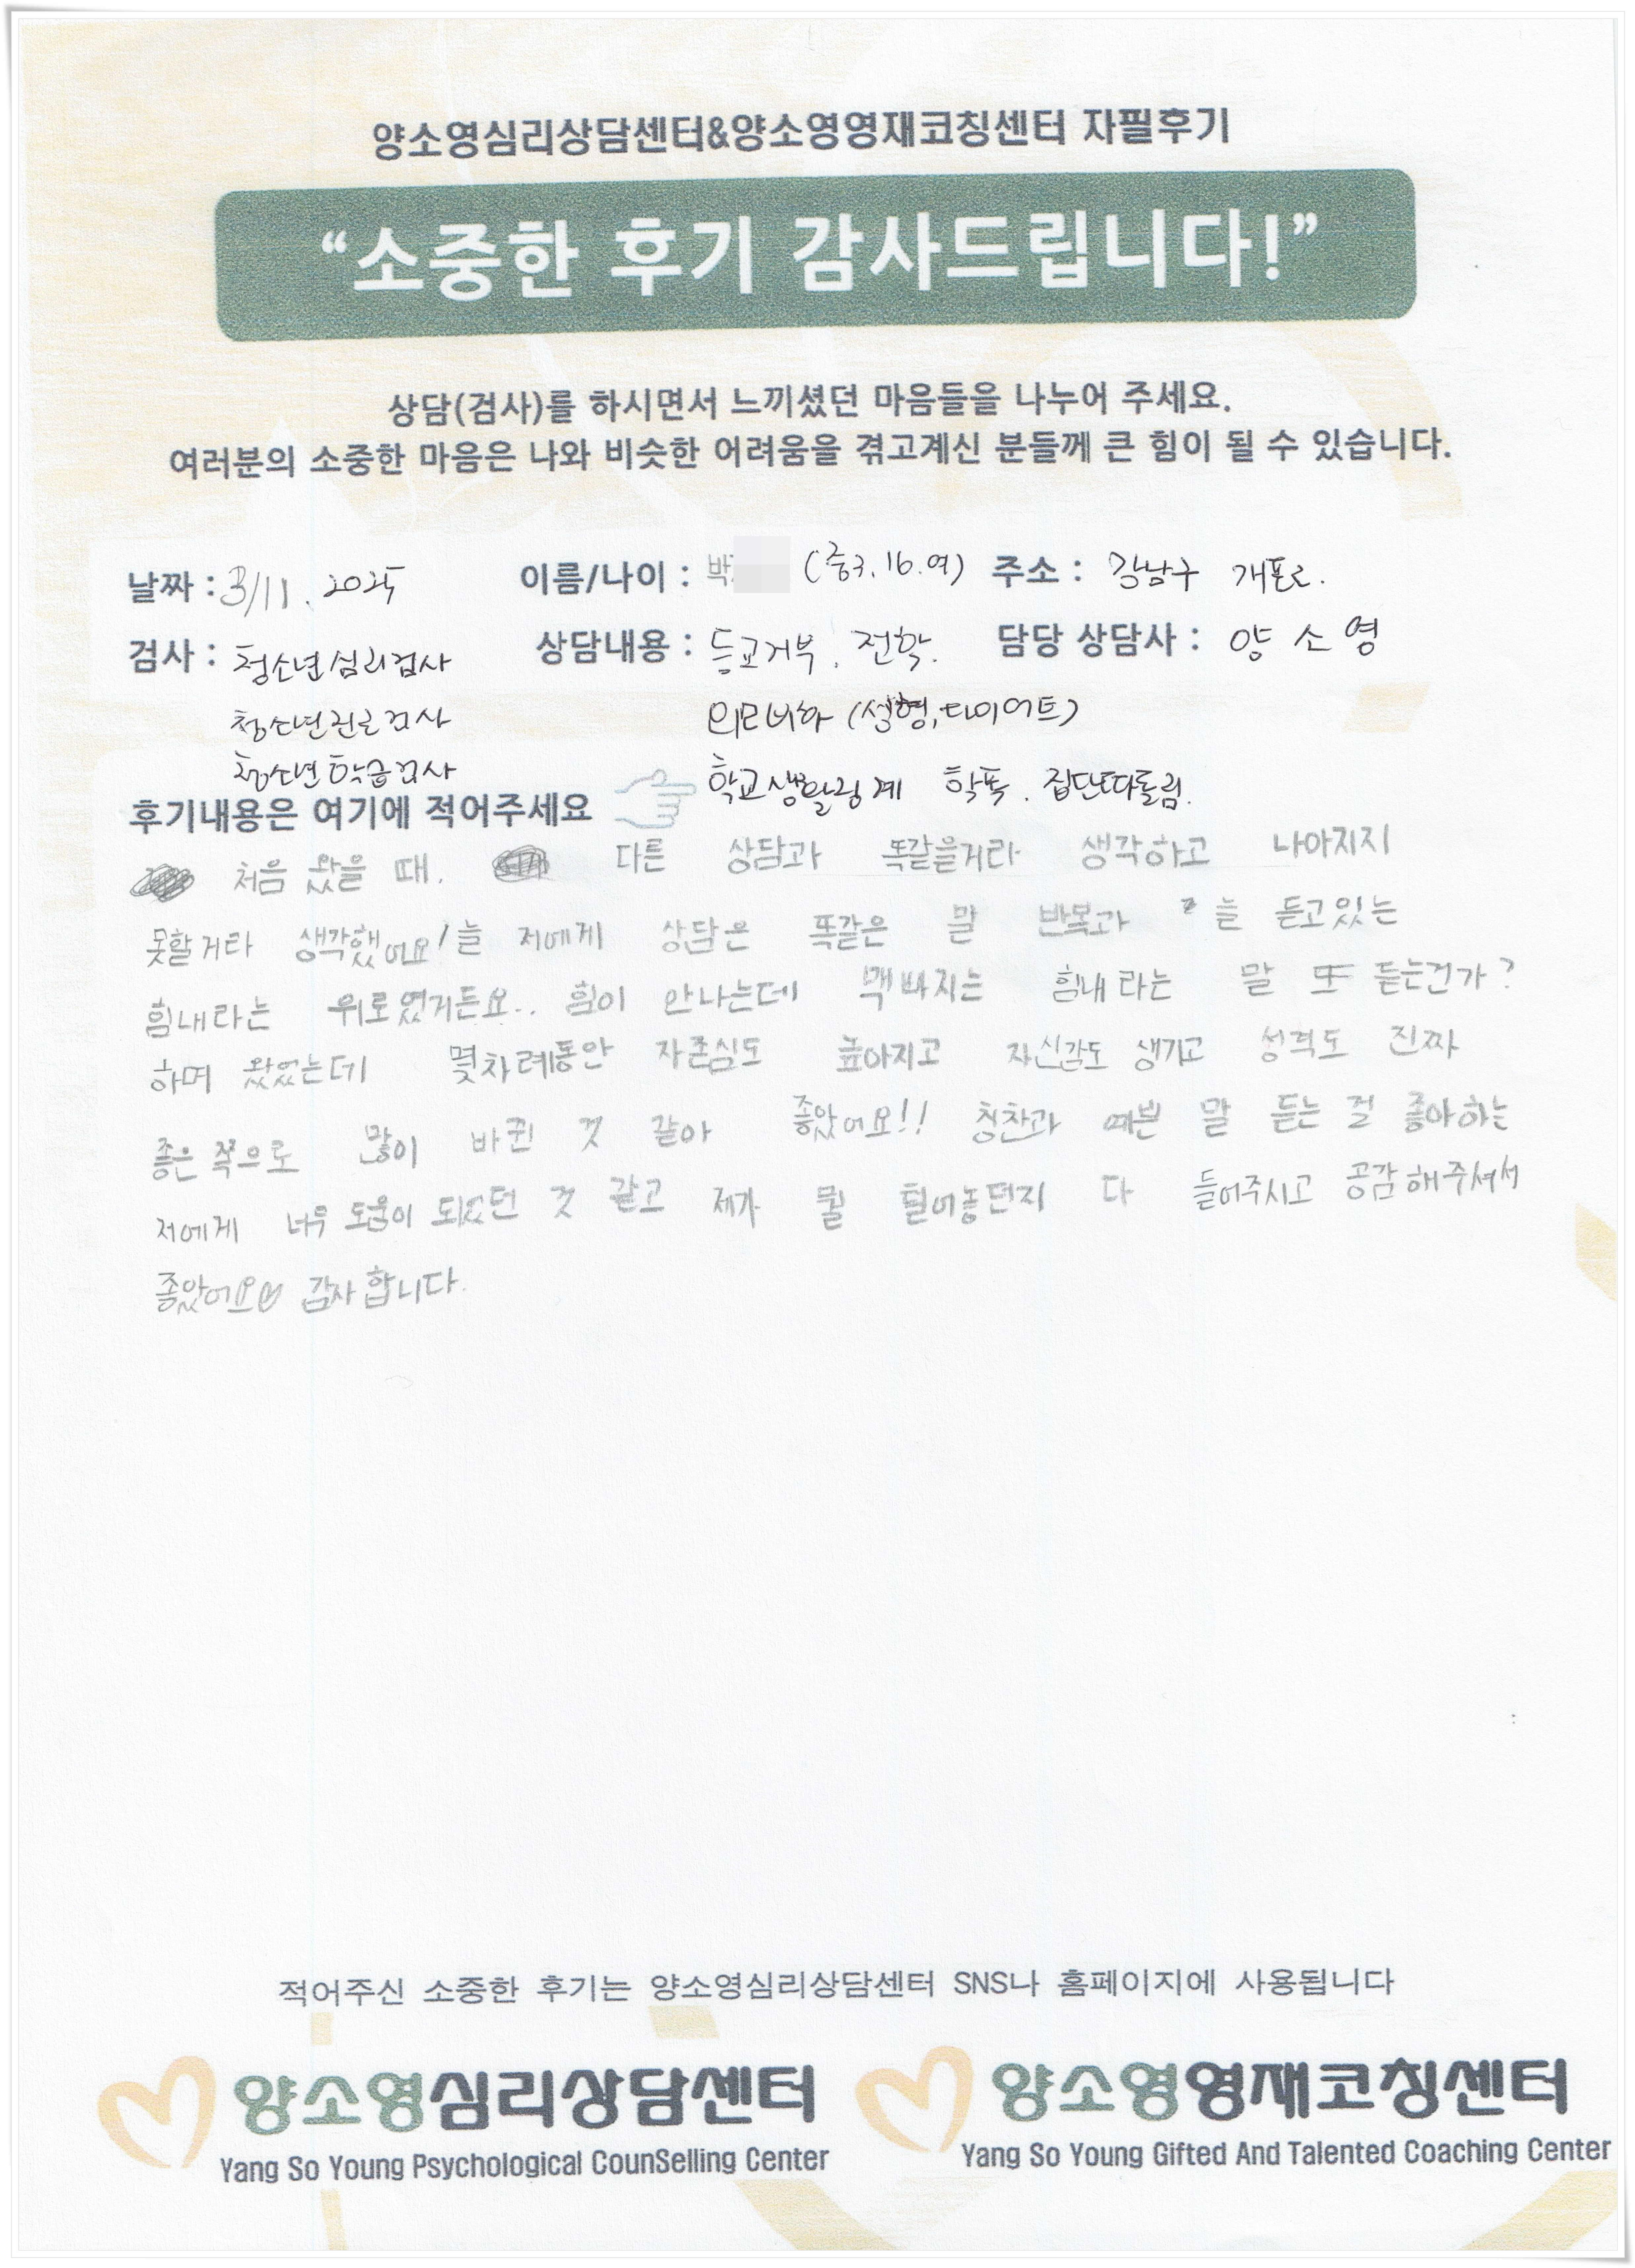 양소영심리상담센터&양소영영재코칭센터 자필후기
“소중한 후기 감사드립니다!”
상담(검사)를 하시면서 느끼셨던 마음들을 나누어 주세요.
여러분의 소중한 마음은 나와 비슷한 어려움을 겪고계신 분들께 큰 힘이 될 수 있습니다.
날짜 : 3/11. 2025 이름/나이 : 박 (중3. 16. 여) 주소 : 강남구 개포로.
검사 : 청소년심리검사 상담내용 : 등교거부. 전학. 담당 상담사 : 양소영
청소년진로검사 외모비하 (성형, 다이어트)
청소년학습검사 학교생활관계 학폭. 집단따돌림.
후기내용은 여기에 적어주세요
처음 왔을 때. 다른 상담과 똑같을거라 생각하고 나아지지
못할거라 생각했어요! 늘 저에게 상담은 똑같은 말 반복과 늘 듣고있는
힘내라는 위로였거든요.. 힘이 안나는데 맥빠지는 힘내라는 말 또 듣는건가?
하며 왔었는데 몇차례동안 자존심도 높아지고 자신감도 생기고 성격도 진짜
좋은 쪽으로 많이 바뀐 것 같아 좋았어요!! 칭찬과 예쁜 말 듣는 걸 좋아하는
저에게 너무 도움이 되었던 것 같고 제가 뭘 털어놓던지 다 들어주시고 공감해주셔서
좋았어요 감사합니다.
적어주신 소중한 후기는 양소영심리상담센터 SNS나 홈페이지에 사용됩니다
양소영심리상담센터 양소영영재코칭센터
Yang So Young Psychological CounSelling Center Yang So Young Gifted And Talented Coaching Center